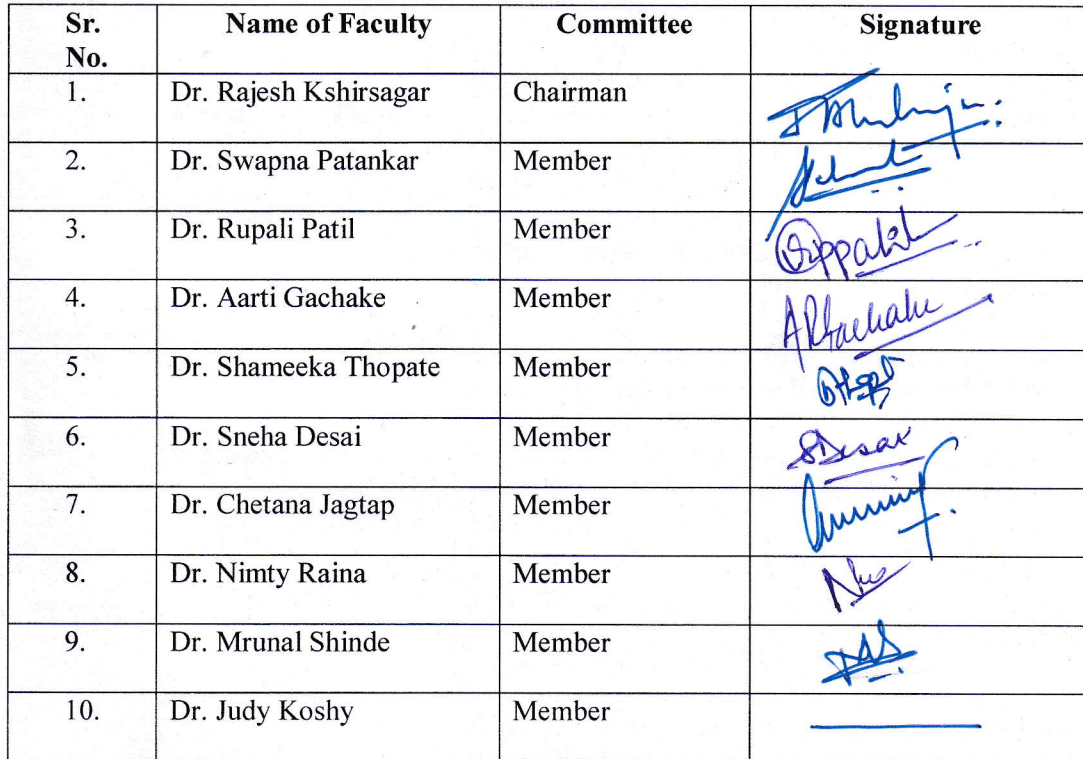 Sr. No. Name of Faculty Committee Signature
1. Dr. Rajesh Kshirsagar Chairman
2. Dr. Swapna Patankar Member
3. Dr. Rupali Patil Member
4. Dr. Aarti Gachake Member
5. Dr. Shameeka Thopate Member
6. Dr. Sneha Desai Member SDesai
7. Dr. Chetana Jagtap Member
8. Dr. Nimty Raina Member
9. Dr. Mrunal Shinde Member
10. Dr. Judy Koshy Member